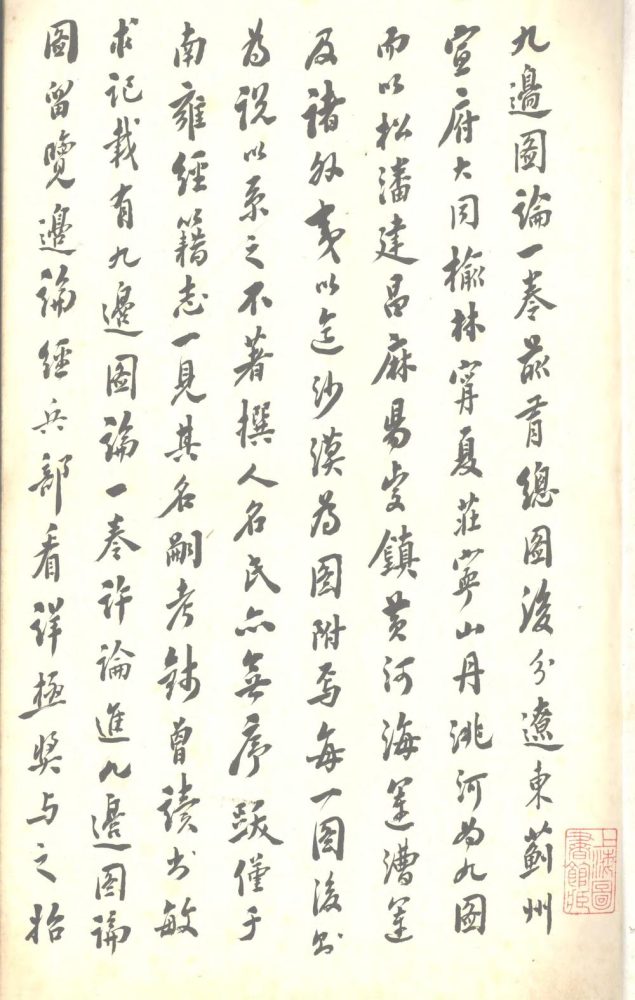 九邊圖論一卷前有總圖後分遼東薊州
宣府大同榆林寧夏莊寧山丹洮河為九圖
而以松潘建昌麻陽虔鎮黃河海運漕運
及諸外夷以迄沙漠為圖附焉每一圖後則
為說以系之不著撰人名氏亦無序跋僅于
南雍經籍志一見其名嗣考錢曾讀書敏
求記載有九邊圖論一卷許論進九邊圖論
圖留覽邊論經兵部看詳極獎與之始
上海圖書館藏